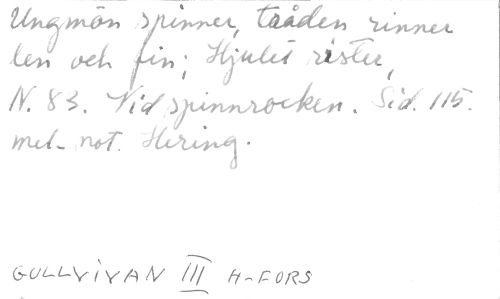 Ungmön spinner, tråden rinner
len och fin; Hjulet rister,
N. 83. Vid spinnrocken. Sid. 115.
mel. not. Hering.
GULLVIVAN III H-FORS